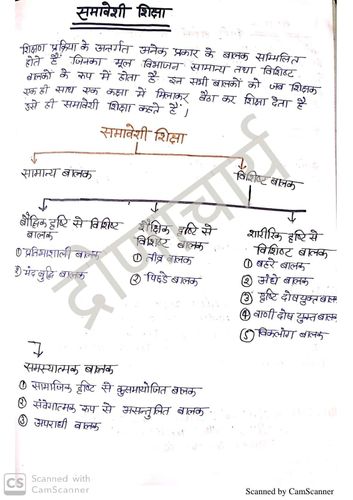 समावेशी शिक्षा
शिक्षण प्रक्रिया के अन्तर्गत अनेक प्रकार के बालक सम्मिलित
होते हैं जिनका मूल विभाजन सामान्य तथा विशिष्ट
बालकों के रूप में होता है इन सभी बालकों को जब शिक्षक
एक ही साथ एक कक्षा में मिलाकर बैठा कर शिक्षा देता है
इसे ही समावेशी शिक्षा कहते हैं।
समावेशी शिक्षा
सामान्य बालक
विशिष्ट बालक
बौद्धिक दृष्टि से विशिष्ट
बालक
① प्रतिभाशाली बालक
② मंद बुद्धि बालक
शैक्षिक दृष्टि से
विशिष्ट बालक
① तीव्र बालक
② पिछडे बालक
शारीरिक दृष्टि से
विशिष्ट बालक
① बहरे बालक
② अंधे बालक
③ दृष्टि दोष युक्त बालक
④ वाणी दोष युक्त बालक
⑤ विकलांग बालक
समस्यात्मक बालक
① सामाजिक दृष्टि से कुसमायोजित बालक
② संवेगात्मक रूप से असन्तुलित बालक
③ अपराधी बालक
द्रोणाचार्य
CS
Scanned with
CamScanner
Scanned by CamScanner